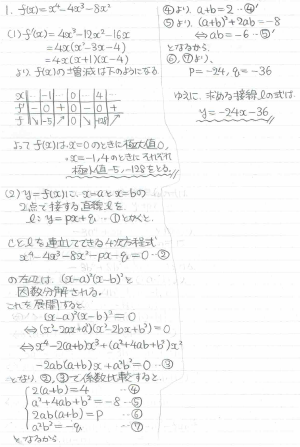 1. f(x)=x⁴-4x³-8x²
(1) f'(x)=4x³-12x²-16x
=4x(x²-3x-4)
=4x(x+1)(x-4)
より、f(x)の増減は下のようになる
x … -1 … 0 … 4 …
f' - 0 + 0 - 0 +
f ↘ -5 ↗ 0 ↘ -128 ↗
よって f(x)は、x=0のときに極大値0,
x=-1,4のときにそれぞれ
極小値-5,-128をとる。
(2) y=f(x)に、x=aとx=bの
2点で接する直線lを
l: y=px+q …①とかくと、
Cとlを連立してできる4次方程式
x⁴-4x³-8x²-px-q=0 …②
の左辺は、(x-a)²(x-b)²と
因数分解される。
これを展開すると
(x-a)²(x-b)²=0
⇔(x²-2ax+a²)(x²-2bx+b²)=0
⇔x⁴-2(a+b)x³+(a²+4ab+b²)x²
-2ab(a+b)x+a²b²=0 …③
となり、②,③で係数比較すると、
2(a+b)=4 …④
a²+4ab+b²=-8 …⑤
2ab(a+b)=p …⑥
a²b²=-q …⑦
となるから、
④より a+b=2 …④'
⑤より、(a+b)²+2ab=-8
⇔ab=-6 …⑤'
となるから、
⑥,⑦より、
p=-24, q=-36
ゆえに、求める接線lの式は
y=-24x-36